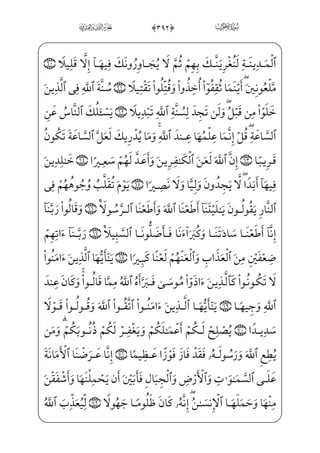 سُورَةُ الأَحْزَابِ ﴿٣٩٢﴾
ٱلْمَدِينَةِ لَنُغْرِيَنَّكَ بِهِمْ ثُمَّ لَا يُجَاوِرُونَكَ فِيهَآ إِلَّا قَلِيلًا ٦٠
مَّلْعُونِينَ ۖ أَيْنَمَا ثُقِفُوٓا۟ أُخِذُوا۟ وَقُتِّلُوا۟ تَقْتِيلًا ٦١ سُنَّةَ ٱللَّهِ فِى ٱلَّذِينَ
خَلَوْا۟ مِن قَبْلُ ۖ وَلَن تَجِدَ لِسُنَّةِ ٱللَّهِ تَبْدِيلًا ٦٢ يَسْـَٔلُكَ ٱلنَّاسُ عَنِ
ٱلسَّاعَةِ ۖ قُلْ إِنَّمَا عِلْمُهَا عِندَ ٱللَّهِ ۚ وَمَا يُدْرِيكَ لَعَلَّ ٱلسَّاعَةَ تَكُونُ
قَرِيبًا ٦٣ إِنَّ ٱللَّهَ لَعَنَ ٱلْكَٰفِرِينَ وَأَعَدَّ لَهُمْ سَعِيرًا ٦٤ خَٰلِدِينَ
فِيهَآ أَبَدًا ۖ لَّا يَجِدُونَ وَلِيًّا وَلَا نَصِيرًا ٦٥ يَوْمَ تُقَلَّبُ وُجُوهُهُمْ فِى
ٱلنَّارِ يَقُولُونَ يَٰلَيْتَنَآ أَطَعْنَا ٱللَّهَ وَأَطَعْنَا ٱلرَّسُولَا۠ ٦٦ وَقَالُوا۟ رَبَّنَآ
إِنَّآ أَطَعْنَا سَادَتَنَا وَكُبَرَآءَنَا فَأَضَلُّونَا ٱلسَّبِيلَا۠ ٦٧ رَبَّنَآ ءَاتِهِمْ
ضِعْفَيْنِ مِنَ ٱلْعَذَابِ وَٱلْعَنْهُمْ لَعْنًا كَبِيرًا ٦٨ يَٰٓأَيُّهَا ٱلَّذِينَ ءَامَنُوا۟
لَا تَكُونُوا۟ كَٱلَّذِينَ ءَاذَوْا۟ مُوسَىٰ فَبَرَّأَهُ ٱللَّهُ مِمَّا قَالُوا۟ ۚ وَكَانَ عِندَ
ٱللَّهِ وَجِيهًا ٦٩ يَٰٓأَيُّهَا ٱلَّذِينَ ءَامَنُوا۟ ٱتَّقُوا۟ ٱللَّهَ وَقُولُوا۟ قَوْلًا
سَدِيدًا ٧٠ يُصْلِحْ لَكُمْ أَعْمَٰلَكُمْ وَيَغْفِرْ لَكُمْ ذُنُوبَكُمْ ۗ وَمَن
يُطِعِ ٱللَّهَ وَرَسُولَهُۥ فَقَدْ فَازَ فَوْزًا عَظِيمًا ٧١ إِنَّا عَرَضْنَا ٱلْأَمَانَةَ
عَلَى ٱلسَّمَٰوَٰتِ وَٱلْأَرْضِ وَٱلْجِبَالِ فَأَبَيْنَ أَن يَحْمِلْنَهَا وَأَشْفَقْنَ
مِنْهَا وَحَمَلَهَا ٱلْإِنسَٰنُ ۖ إِنَّهُۥ كَانَ ظَلُومًا جَهُولًا ٧٢ لِّيُعَذِّبَ ٱللَّهُ